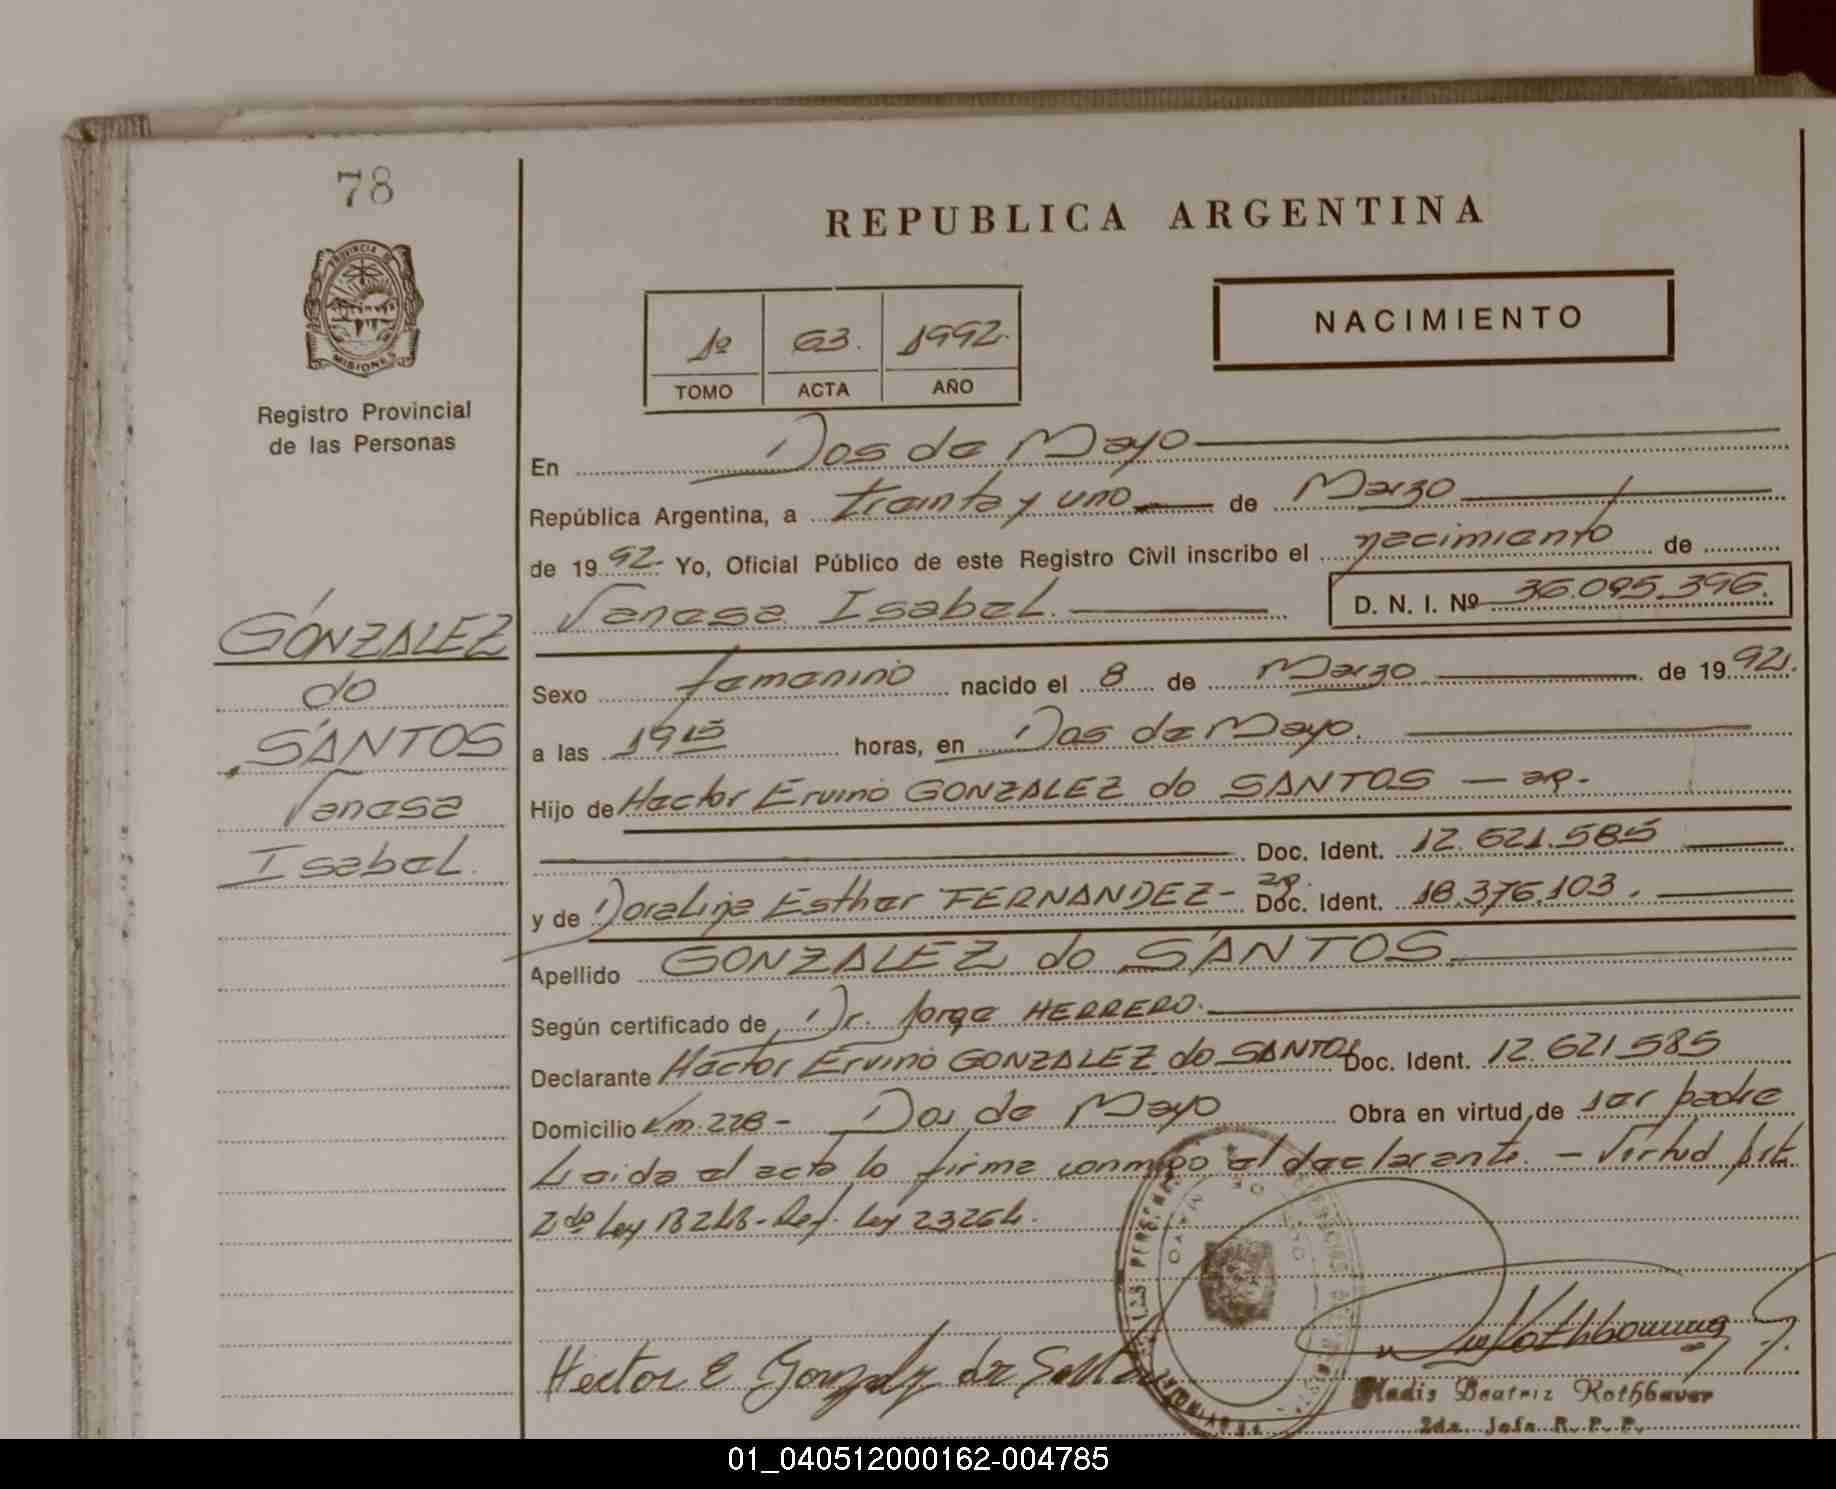 78
PROVINCIA DE
MISIONES
Registro Provincial
de las Personas
GONZALEZ
do
SANTOS
Vanesa
Isabel.
REPUBLICA ARGENTINA
1º 63. 1992.
TOMO ACTA AÑO
NACIMIENTO
En Dos de Mayo
República Argentina, a treinta y uno de Marzo
de 1992 Yo, Oficial Público de este Registro Civil inscribo el nacimiento de
Vanesa Isabel. D. N. I. Nº 36.095.396.
Sexo femenino nacido el 8 de Marzo de 1992.
a las 19 15 horas, en Dos de Mayo.
Hijo de Hector Ervino GONZALEZ do SANTOS - ap.
Doc. Ident. 12.621.585
y de Doralina Esther FERNANDEZ - ap. Doc. Ident. 18.376.103.
Apellido GONZALEZ do SANTOS.
Según certificado de Dr. Jorge HERRERO.
Declarante Héctor Ervino GONZALEZ do SANTOS Doc. Ident. 12.621.585
Domicilio Km. 228 - Dos de Mayo Obra en virtud de ser padre
Leida el acta lo firma conmigo el declarante. - Virtud Art.
2do Ley 18248 - Ref. Ley 23264.
DOS DE MAYO
MISIONES
Hector E Gonzalez do Santos
Rothbauer
Gladis Beatriz Rothbauer
2da. Jefa R. P. P.
01_040512000162-004785